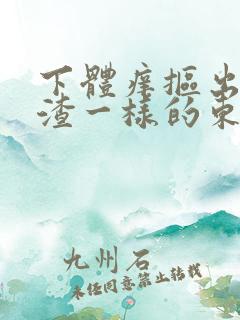 下體癢摳出
渣一樣的東
九州石
未经同意禁止转载